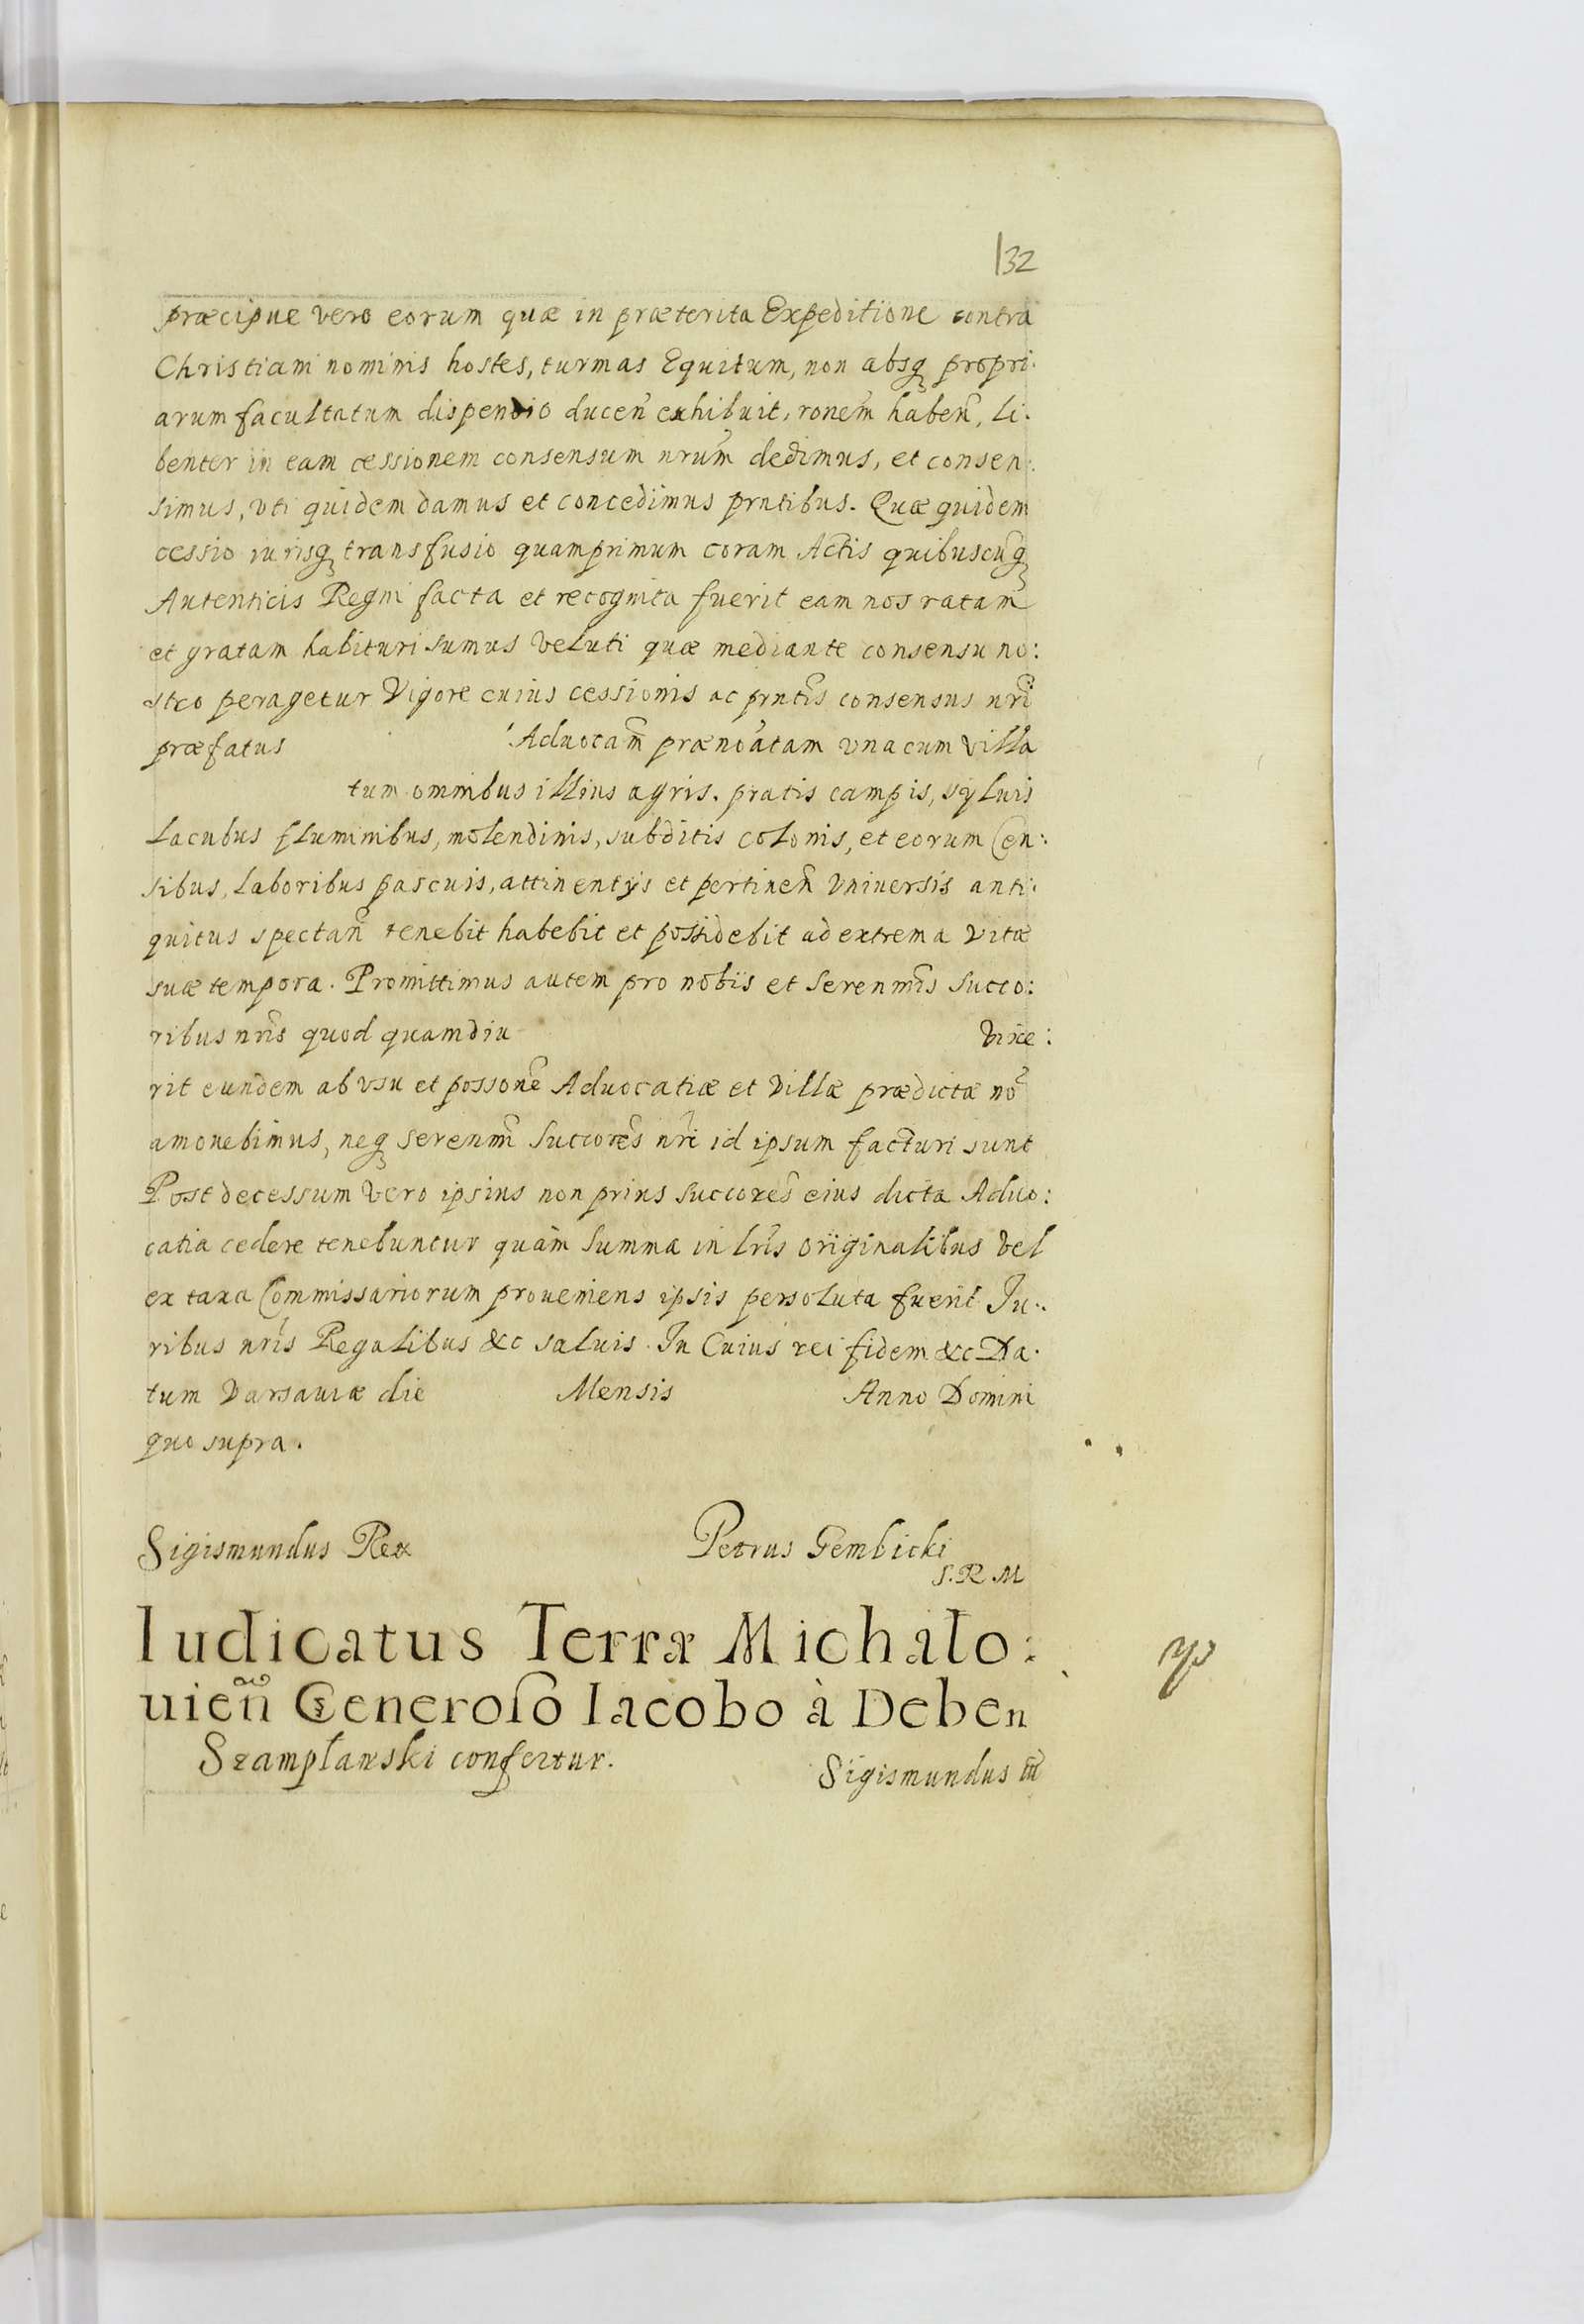 132
præcipue vero eorum quæ in præterita Expeditione contra
Christiani nominis hostes, turmas Equitum, non absq propri:
arum facultatum dispendio ducen̄ exhibuit, ronem̄ haben̄, li:
benter in eam cessionem consensum nrum̄ dedimus, et consen:
simus, vti quidem damus et concedimus prntibus. Quæ quidem
cessio iurisq transfusio quamprimum coram Actis quibuscūq
Autenticis Regni facta et recognita fuerit eam nos ratam
et gratam habituri sumus veluti quæ mediante consensu no:
stro peragetur Vigore cuius cessionis ac prntis̄ consensus nrī
præfatus Aduocam̄ prænōatam vna cum villa
tum omnibus illius agris. pratis campis, syluis
Lacubus fluminibus, molendinis, subditis colonis, et eorum Cen:
sibus, Laboribus pascuis, attinentÿs et pertinen̄ Vniuersis anti:
quitus spectan̄ tenebit habebit et possidebit ad extrema vitæ
suæ tempora. Promittimus autem pro nobis et Serenmis̄ Succo:
ribus nrīs quod quamdiu vixe:
rit eundem ab vsu et possone̅ Aduocatiæ et Villæ prædictæ nō
amonebimus, neq serenmī Succores̄ nrī id ipsum facturi sunt
Post decessum vero ipsius non prius succores̄ eius dicta Aduo:
catia cedere tenebuntur quàm Summa in lrīs originalibus vel
ex taxa Commissariorum proueniens ipsis persoluta fuerit Ju:
ribus nrīs Regalibus &c saluis. In Cuius rei fidem &c Da:
tum Varsauiæ die Mensis Anno Domini
quo supra.
Sigismundus Rex Petrus Gembicki
S. R. M
Iudicatus Terræ Michalo:
uien̄ Generoso Iacobo à Deben
Szamplanski confertur.
Sigismundus III